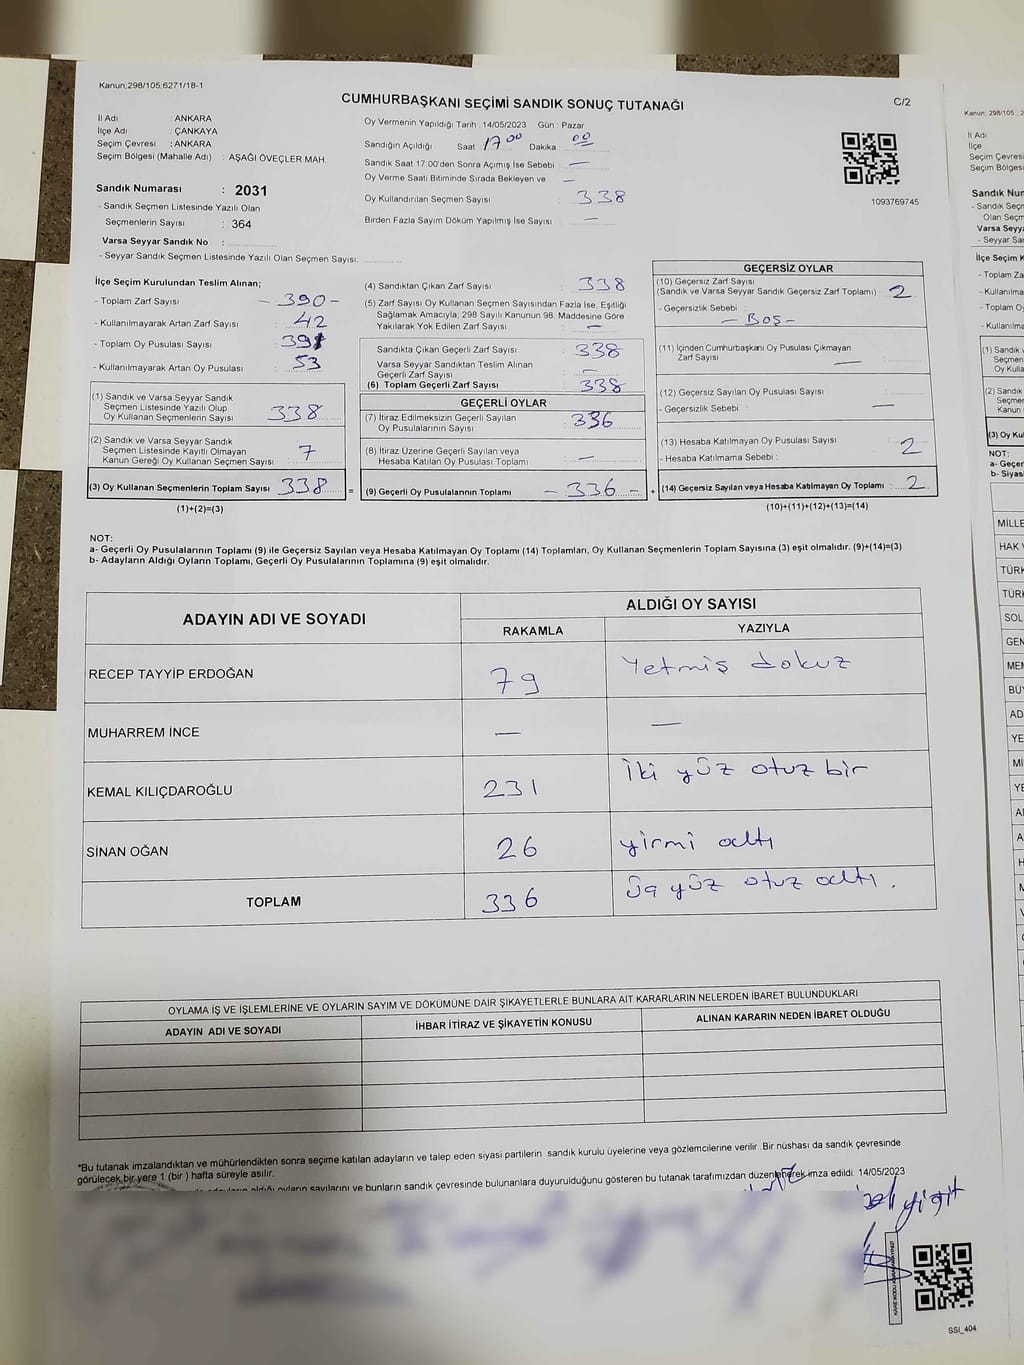 Kanun;298/105;6271/18-1
CUMHURBAŞKANI SEÇİMİ SANDIK SONUÇ TUTANAĞI
C/2
İl Adı : ANKARA
İlçe Adı : ÇANKAYA
Seçim Çevresi : ANKARA
Seçim Bölgesi (Mahalle Adı) : AŞAĞI ÖVEÇLER MAH.
Sandık Numarası : 2031
- Sandık Seçmen Listesinde Yazılı Olan
Seçmenlerin Sayısı : 364
Varsa Seyyar Sandık No :
- Seyyar Sandık Seçmen Listesinde Yazılı Olan Seçmen Sayısı:
Oy Vermenin Yapıldığı Tarih : 14/05/2023 Gün : Pazar
Sandığın Açıldığı Saat 17 00 Dakika : 00
Sandık Saat 17:00'den Sonra Açımış İse Sebebi : —
Oy Verme Saati Bitiminde Sırada Bekleyen ve —
Oy Kullandırılan Seçmen Sayısı : 338
Birden Fazla Sayım Döküm Yapılmış İse Sayısı : —
1093769745
İlçe Seçim Kurulundan Teslim Alınan;
- Toplam Zarf Sayısı : - 390 -
- Kullanılmayarak Artan Zarf Sayısı : 42
- Toplam Oy Pusulası Sayısı : 391
- Kullanılmayarak Artan Oy Pusulası : 53
(1) Sandık ve Varsa Seyyar Sandık
Seçmen Listesinde Yazılı Olup
Oy Kullanan Seçmenlerin Sayısı : 338
(2) Sandık ve Varsa Seyyar Sandık
Seçmen Listesinde Kayıtlı Olmayan
Kanun Gereği Oy Kullanan Seçmen Sayısı : 7
(3) Oy Kullanan Seçmenlerin Toplam Sayısı : 338
(1)+(2)=(3)
(4) Sandıktan Çıkan Zarf Sayısı : 338
(5) Zarf Sayısı Oy Kullanan Seçmen Sayısından Fazla İse, Eşitliği
Sağlamak Amacıyla; 298 Sayılı Kanunun 98. Maddesine Göre
Yakılarak Yok Edilen Zarf Sayısı : —
Sandıkta Çıkan Geçerli Zarf Sayısı : 338
Varsa Seyyar Sandıktan Teslim Alınan
Geçerli Zarf Sayısı : —
(6) Toplam Geçerli Zarf Sayısı : 338
GEÇERLİ OYLAR
(7) İtiraz Edilmeksizin Geçerli Sayılan
Oy Pusulalarının Sayısı : 336
(8) İtiraz Üzerine Geçerli Sayılan veya
Hesaba Katılan Oy Pusulası Toplamı : —
= (9) Geçerli Oy Pusulalarının Toplamı : - 336 - +
GEÇERSİZ OYLAR
(10) Geçersiz Zarf Sayısı
(Sandık ve Varsa Seyyar Sandık Geçersiz Zarf Toplamı) : 2
- Geçersizlik Sebebi :
- Boş -
(11) İçinden Cumhurbaşkanı Oy Pusulası Çıkmayan
Zarf Sayısı : —
(12) Geçersiz Sayılan Oy Pusulası Sayısı :
- Geçersizlik Sebebi : —
(13) Hesaba Katılmayan Oy Pusulası Sayısı : 2
- Hesaba Katılmama Sebebi :
(14) Geçersiz Sayılan veya Hesaba Katılmayan Oy Toplamı : 2
(10)+(11)+(12)+(13)=(14)
NOT:
a- Geçerli Oy Pusulalarının Toplamı (9) ile Geçersiz Sayılan veya Hesaba Katılmayan Oy Toplamı (14) Toplamları, Oy Kullanan Seçmenlerin Toplam Sayısına (3) eşit olmalıdır. (9)+(14)=(3)
b- Adayların Aldığı Oyların Toplamı, Geçerli Oy Pusulalarının Toplamına (9) eşit olmalıdır.
ADAYIN ADI VE SOYADI
ALDIĞI OY SAYISI
RAKAMLA YAZIYLA
RECEP TAYYİP ERDOĞAN 79 Yetmiş dokuz
MUHARREM İNCE — —
KEMAL KILIÇDAROĞLU 231 İki yüz otuz bir
SİNAN OĞAN 26 yirmi altı
TOPLAM 336 üç yüz otuz altı.
OYLAMA İŞ VE İŞLEMLERİNE VE OYLARIN SAYIM VE DÖKÜMÜNE DAİR ŞİKAYETLERLE BUNLARA AİT KARARLARIN NELERDEN İBARET BULUNDUKLARI
ADAYIN ADI VE SOYADI İHBAR İTİRAZ VE ŞİKAYETİN KONUSU ALINAN KARARIN NEDEN İBARET OLDUĞU
*Bu tutanak imzalandıktan ve mühürlendikten sonra seçime katılan adayların ve talep eden siyasi partilerin sandık kurulu üyelerine veya gözlemcilerine verilir. Bir nüshası da sandık çevresinde
görülecek bir yere 1 (bir ) hafta süreyle asılır.
oyların sayılarını ve bunların sandık çevresinde bulunanlara duyurulduğunu gösteren bu tutanak tarafımızdan düzenlenerek imza edildi. 14/05/2023
yiğit
SSI_404
Kanun; 298/105
İl Adı
İlçe
Seçim Çevres
Seçim Bölges
Sandık Nu
- Sandık Seç
Olan Seçm
Varsa Seyya
- Seyyar Sa
İlçe Seçim K
- Toplam Za
- Kullanılma
- Toplam O
- Kullanılma
(1) Sandık v
Seçmen
Oy Kulla
(2) Sandık
Seçmen
Kanun
(3) Oy Ku
NOT:
a- Geçer
b- Siyas
MİLLE
HAK
TÜRK
TÜR
SOL
GEN
ME
BÜ
AD
YE